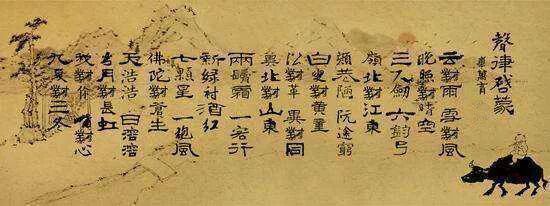 聲律啓蒙
車萬育
云對雨 雪對風
晚照對晴空
三尺劍 六鈞弓
嶺北對江東
顏巷陋 阮途窮
白叟對黃童
沿對革 異對同
冀北對山東
兩鬢霜 一客行
新綠衬酒紅
七顆星 一砲風
佛陀對蒼生
天浩浩 日溶溶
月對長虹
我對你 對心
九對三冬